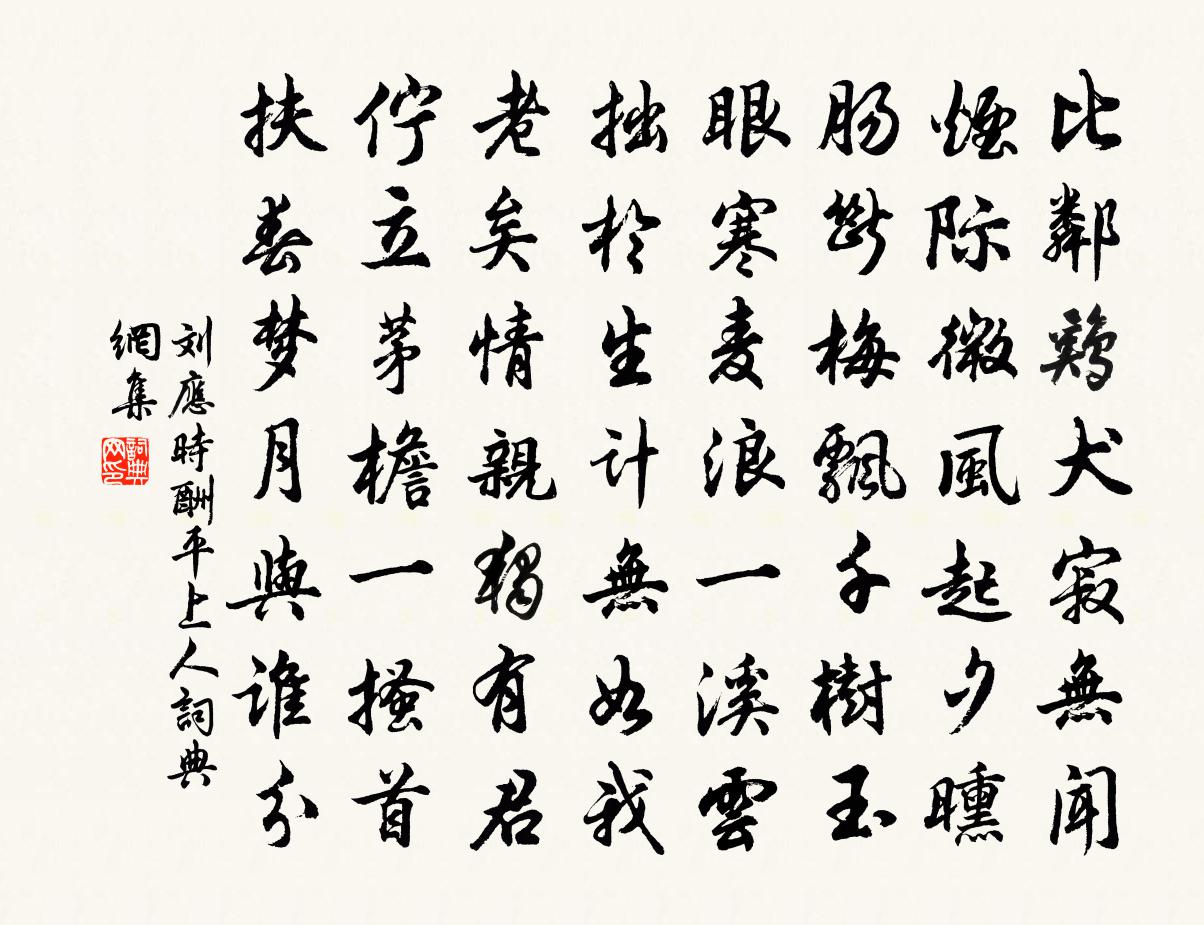 比鄰鷄犬寂無聞
煙际微風起夕曛
肠斷梅飄千樹玉
眼寒麦浪一溪雲
拙於生計無如我
老矣情親獨有君
佇立茅檐一搔首
扶春梦月與谁分
刘應時酬平上人詞典
網集
詞典網印